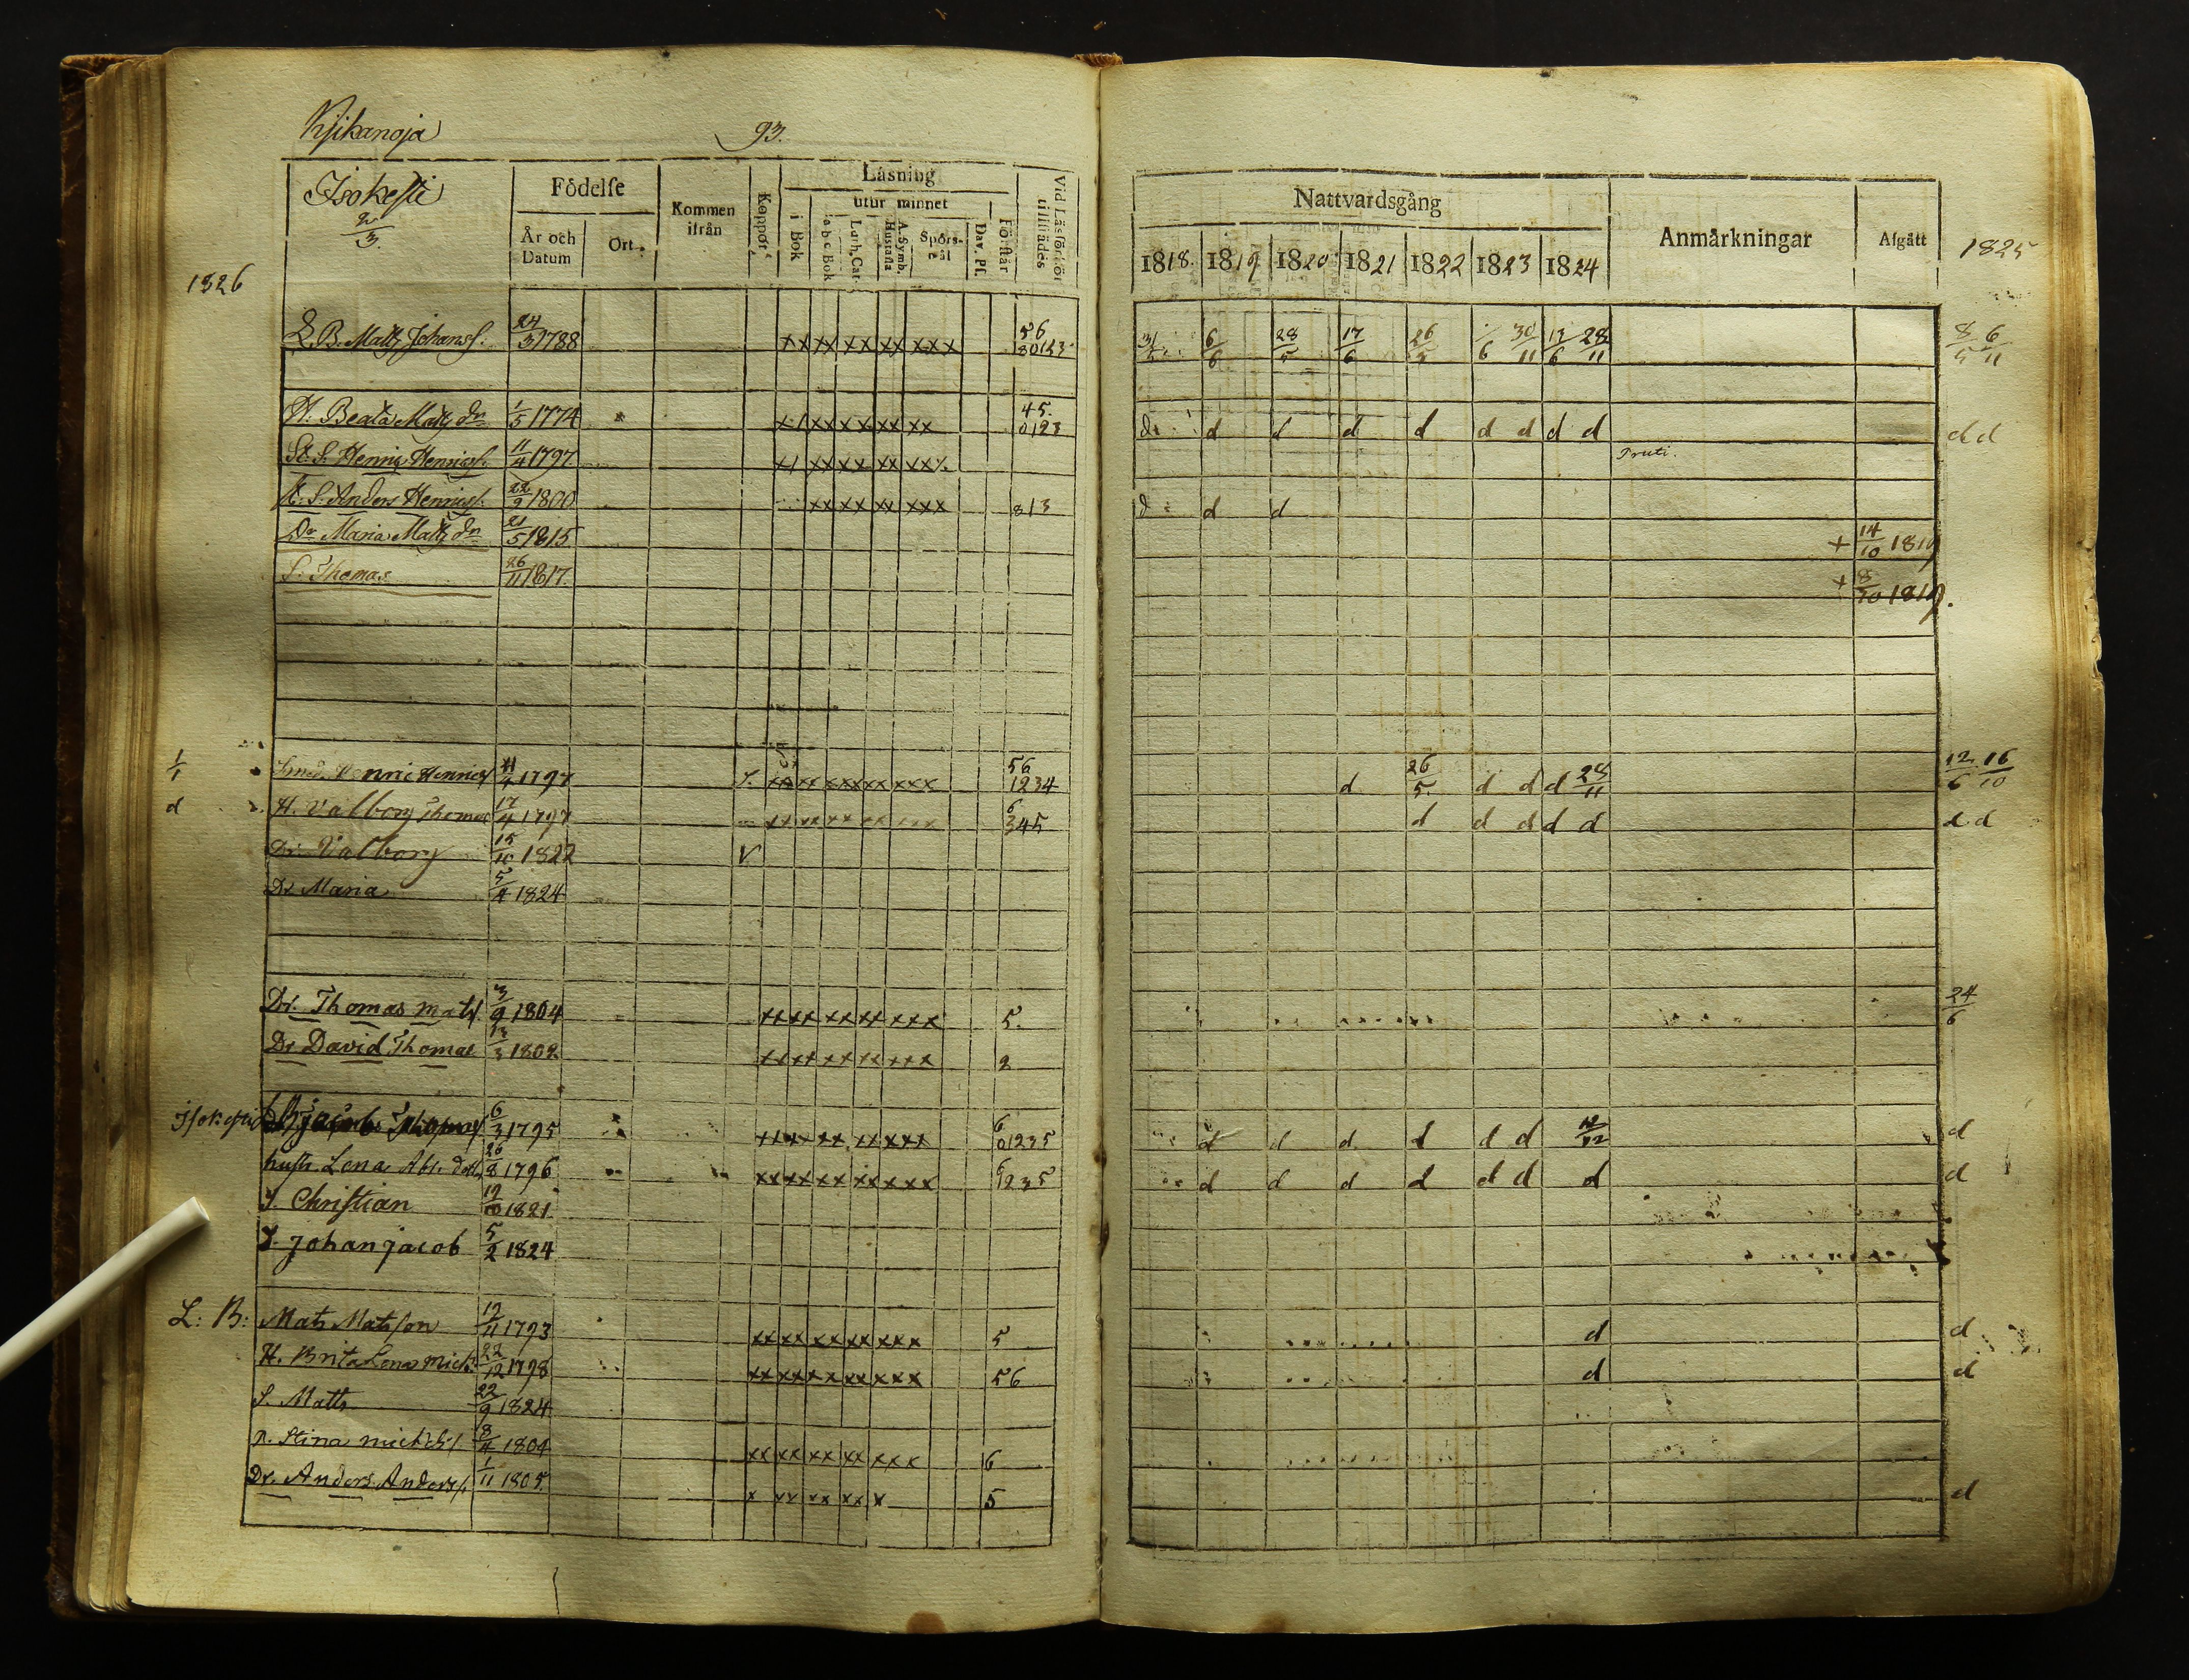 Kyikanoja 93.
Isokesti
2/3.
Födelse
År och Datum
Ort.
Kommen ifrån
Koppor
Läsning
i Bok
utur minnet
a b c Bok
Luth. Cat.
A. Symb. Hustafla
Spörsmål
Dav. Ps.
Förstår
Vid Läsförhör tillstädes
Nattvardsgång
1818. 1819 1820 1821 1822 1823 1824
Anmärkningar
Afgått
1825
1826
L. B. Matz Johanss. 24/3 1788 xx xx xx xx xxx 56 80123 6/6 28/5 17/6 26/5 30/11 13/6 28/11 8/5 6/11
H. Beata Matz dr 1/5 1774 x/ xx xx xx xx 45. 0123 d d d d d d d d d d d
St. S. Henric Henricss. 11/4 1797 x/ xx xx xx xx Fruti.
St. S. Anders Henricss. 22/9 1800 xx xx xx xxx 813 d d d
Dr Maria Matz dr 21/5 1815 + 14/10 1819
S. Thomas 26/11 1817. + 8/10 1819.
1/1 Smed. Henric Henricss 11/4 1797 S. xx xx xx xx xxx 56 1234 d 26/5 d d d 28/11 12/6 16/10
d H. Valborg Thomas 17/4 1797 xx xx xx xx xxx 6 345 d d d d d d d
Dr. Valborg 15/10 1822 V
Dr Maria 5/4 1824
Dr. Thomas mats/ 3/9 1804 xx xx xx xx xxx 5. 24/6
Dr David Thomas 13/3 1802 xx xx xx xx xxx 2
Isokesti Jacob Thomass 6/3 1795 xx xx xx xx xxx 6 01235 d d d d d d 12/12 d
hustr. Lena Abr. dott. 26/8 1796 xx xx xx xx xxx 6 1235 d d d d d d d d
S. Christian 12/10 1821.
S. Johan jacob 5/2 1824
L: B: Mats Matsson 12/11 1793 xx xx xx xx xxx 5 d d
H. Brita Lena Mich. 22/12 1798 xx xx xx xx xxx 56 d d
S. Matts 22/9 1824
P. Stina michels/ 8/4 1804 xx xx xx xx xxx 6
Dr. Anders Anders/ 1/11 1805 x xx xx xx x 5 d